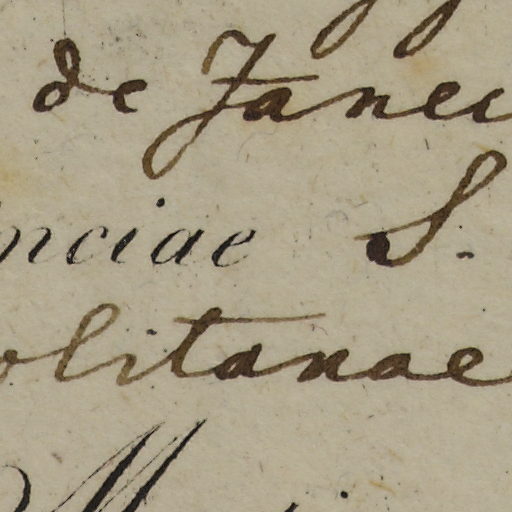 de Janei
nciae S.
olitanae
M